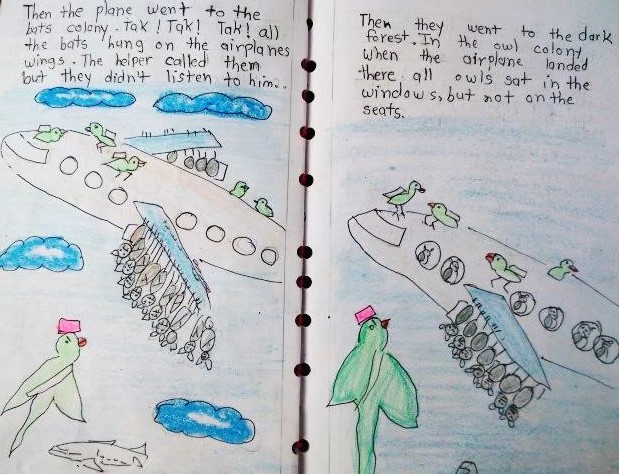 Then the plane went to the
bats colony. Tak! Tak! Tak! all
the bats hung on the airplanes
wings. The helper called them
but they didn't listen to him..
Then they went to the dark
forest. In the owl colony
when the airplane landed
there all owls sat in the
windows, but not on the
seats.